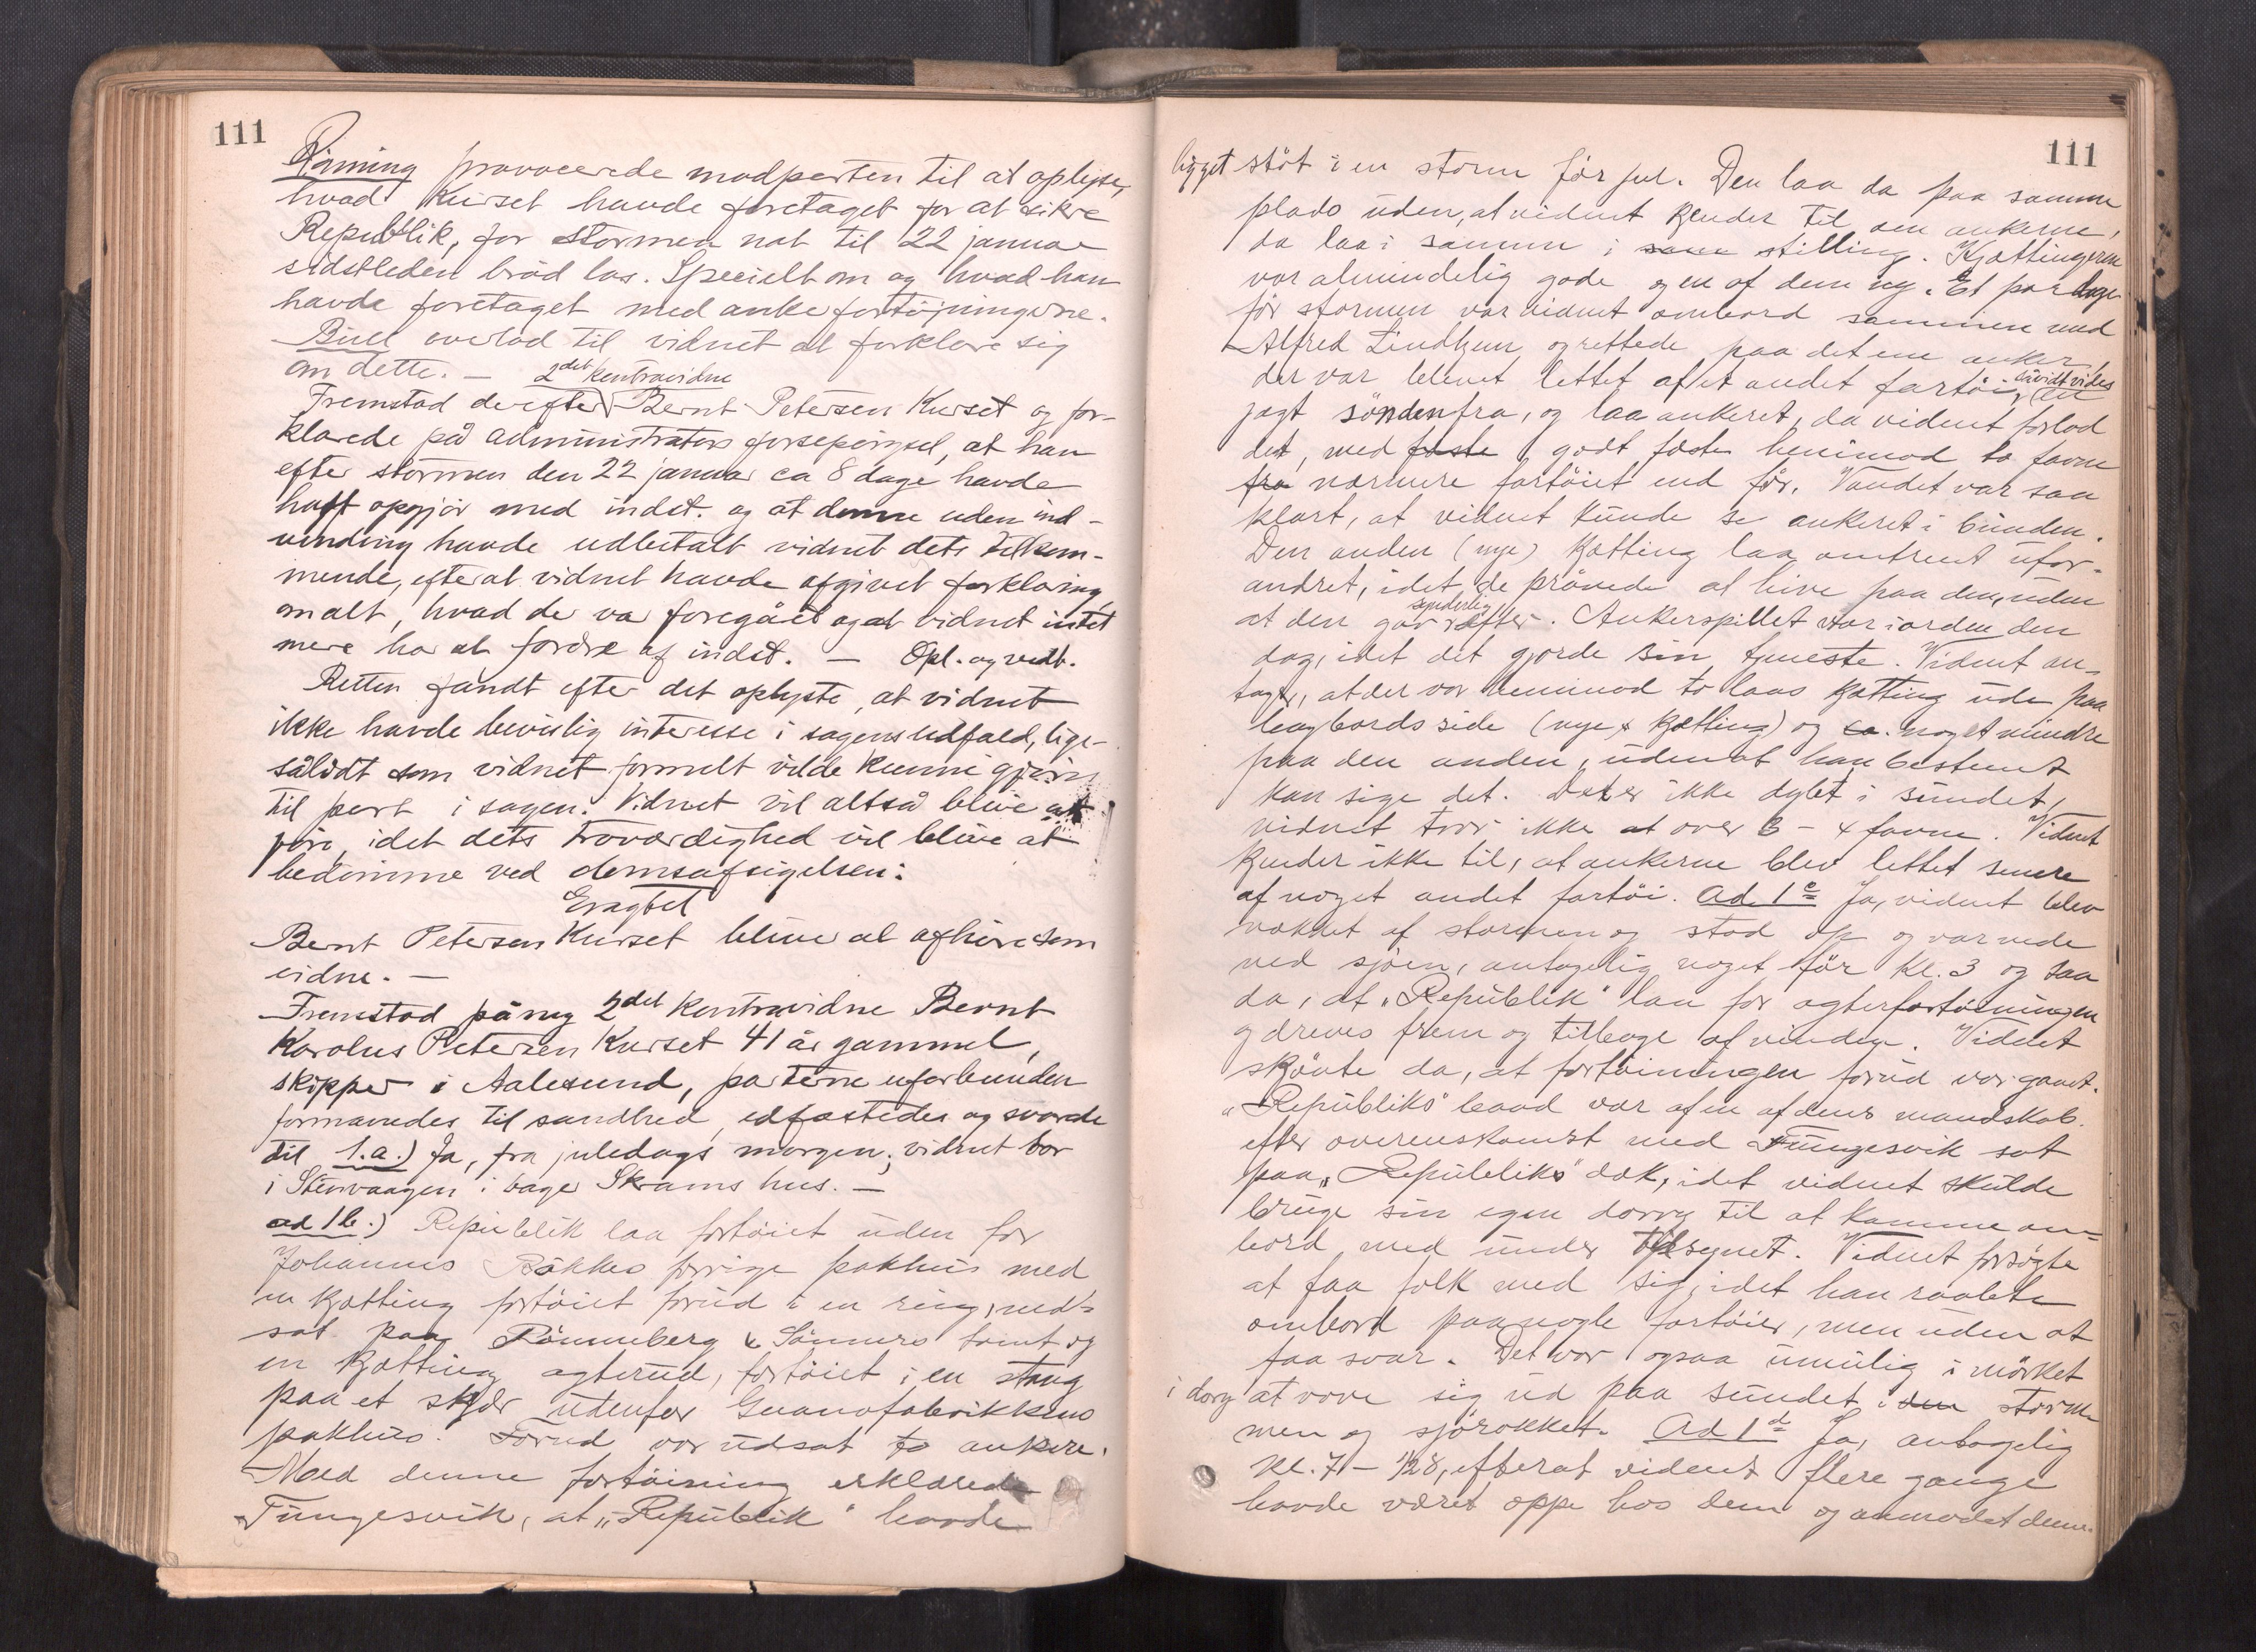 111
Rinning provocerede modparten til at oplyse,
hvad Kurset havde foretaget for at sikre
Republik, før stormen nat til 22 januar
sidstleden bröd løs. Specielt om og hvad han
havde foretaget med ankerfortøjningerne.
Bull overlod til vidnet at forklare sig
om dette. — 2det kontravidne
Fremstod derefter Bernt Petersen Kurset og for-
klarede på administrators forespørgsel, at han
efter stormen den 22 januar ca 8 dage havde
haft opgjör med indst. og at denne uden ind-
vending havde udbetalt vidnet dets tilkom-
mende, efterat vidnet havde afgivet forklaring
om alt, hvad der var foregået og at vidnet intet
mere har at fordre af indst. — Opl. og vedt.
Retten fandt efter det oplyste, at vidnet
ikke havde bevislig interesse i sagens udfald, lige-
sålidt som vidnet formelt vilde kunne gjøres
til part i sagen. Vidnet vil altså blive at
före, idet dets troværdighed vil blive at
bedömme ved domsafsigelsen:
Eragtet
Bernt Petersen Kurset bliver at afhöre som
vidne. —
Fremstod påny 2det kontravidne Bernt
Karolus Petersen Kurset 41 år gammel,
skipper i Aalesund, parterne uforbunden
formanedes til sandhed, edfæstedes og svarede
til 1.a.) Ja, fra juledags morgen; vidnet bor
i Stenvaagen i bager Skrams hus. —
ad 1b.) Republik laa fortöiet uden for
Johannes Bökkes forrige pakhus med
en kjætting fortöiet forud i en ring, ned-
sat paa Rönneberg & Sönners tomt og
en kjætting agterud, fortöiet i en stang
paa et skjær udenfor Guanofabrikkens
pakhus. Forud var udsat to ankere.
Med denne fortöining erklærede
Tungesvik, at „Republik" havde
111
ligget stöt i en storm før jul. Den laa da paa samme
plads uden, at vidnet kjender til om ankerne,
da laa i samme i same stilling. Kjættingerne
var almindelig gode og en af dem ny. Et par dage
för stormen var vidnet ombord sammen med
Alfred Lindhjem og rettede paa det ene anker,
der var blevet lettet af et andet fartöi, såvidt vides en
jagt söndenfra, og laa ankeret, da vidnet forlod
det, med faste godt fæste henimod to favne
fra nærmere fartöiet end för. Vandet var saa
klart, at vidnet kunde se ankeret i bunden.
Den anden (nye) kjætting laa omtrent ufor-
andret, idet de prövede at hive paa den, uden
at den gav synderlig efter. Ankerspillet var i orden den
dag, idet det gjorde sin tjeneste. Vidnet an-
tager, at der var henimod to laas kjætting ude paa
bagbords side (nye kjætting) og ca. noget mindre
paa den anden, uden at han bestemt
kan sige det. Det er ikke dybt i sundet,
vidnet tror ikke at over 3 - 4 favne. Vidnet
kjender ikke til, at ankerne blev lettet senere
af noget andet fartöi. Ad 1c Ja, vidnet blev
vækket af stormen og stod op og var nede
ved sjöen, antagelig noget för Kl. 3 og saa
da, at „Republik" laa for agterfortöiningen
og dreves frem og tilbage af vinden. Vidnet
skjönte da, at fortöiningen forud var gaaet.
„Republiks" baad var af en af dens mandskab
efter overenskomst med Tungesvik sat
paa „Republiks" dæk, idet vidnet skulde
bruge sin egen dorry til at komme om-
bord med under tilsynet. Vidnet forsögte
at faa folk med sig, idet han raabte
ombord paa nogle fartöier, men uden at
faa svar. Det var ogsaa umulig i mörket
i dory at vove sig ud paa sundet i den stor-
men og sjörokket. Ad 1d Ja, antagelig
Kl. 7 - 1/2 8, efterat vidnet flere gange
havde været oppe hos dem og anmodet dem